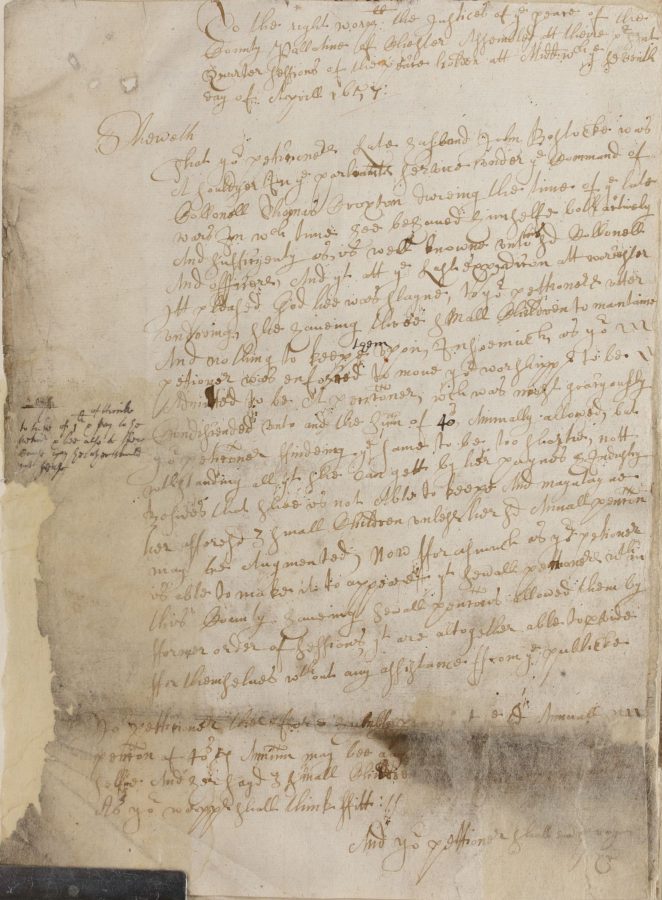 To the right worpll the Justices of ye peace of the
County Pallatine of Chester Assembled att theire
Quarter Sessions of the peace holden att Middwch ye seventh
day of Aprill 1657:
Sheweth
That yor petitioners Late husband John Bostocke was
A souldyer in ye parliamts Service under ye Command of
Collonell Thomas Croxton dureing the time of ye late
wars In wch time hee behaved himselfe both actively
And sufficiently as is well knowne unto sd Collonell
And officers, And yt att ye Last expedition att worcester
Itt pleased God hee was slayne, to yor petitioners utter
undoving, shee haveing three small Children to mantaine
And nothing to keepe them upon, Insoemuch as yor
petitioner was enforced to move yor worshipps to be
Admitted to be A pentioner, wch was most gratiously
Condisended unto and the sum of 40s Annually allowed, but
yor petitioner findeing ye same to be too short, nott
wthstanding all yt shee can gett by her paynes & Industry
that shee is not Able to keepe And
her aforesd 3 small Children unless her sd Annuall pention
may be Augmented, Now fforasmuch as yor petitioner
is able to make itt to appeare yt sevrall pentioners wthin
this County haveing sevrall pentions allowed them by
fformer order of Sessions, yt are altogether able to pvide
ffor themselves wthout any assistance ffrom ye publicke
Yor petitioner therefore humbly Annuall
pention of 40s p Annum may bee
selfe And her sayd 3 small Children
As yor worpps shall think ffitt://
And yor petitioner shall ever pray